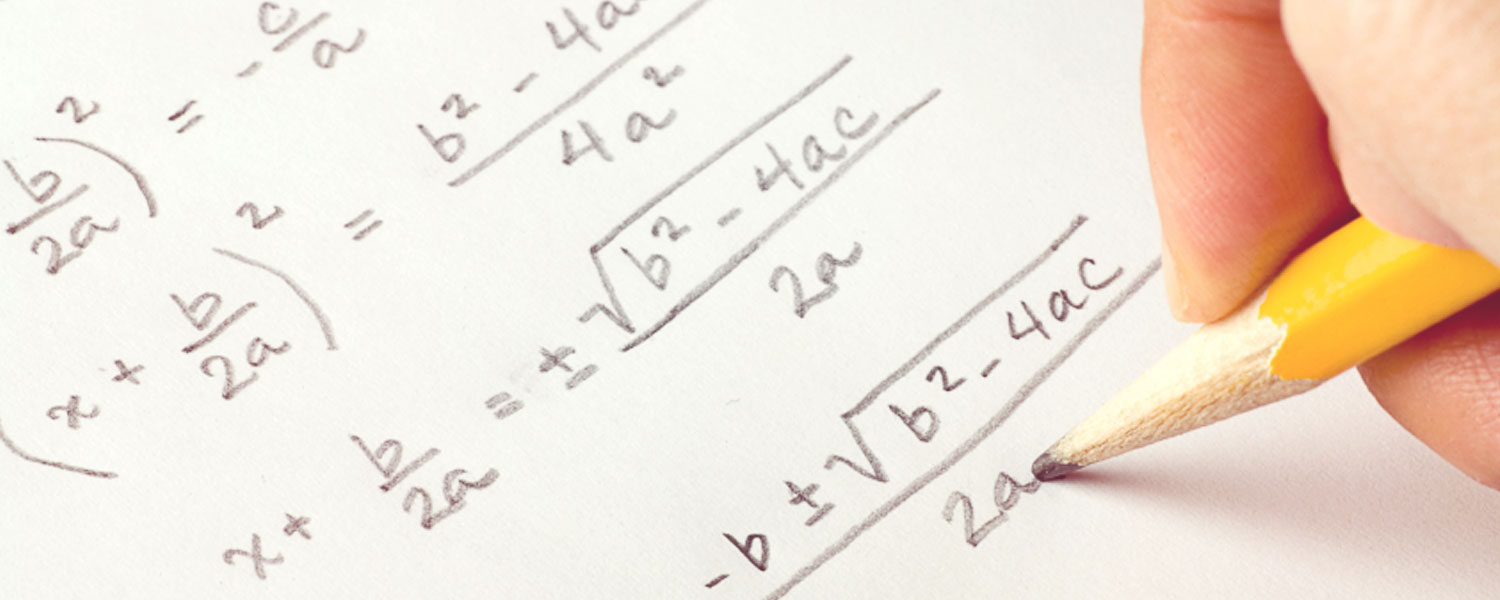 (b/2a)² = -c/a
(x + b/2a)² = b² - 4a / 4a²
x + b/2a = ± √(b² - 4ac) / 2a
-b ± √(b² - 4ac) / 2a